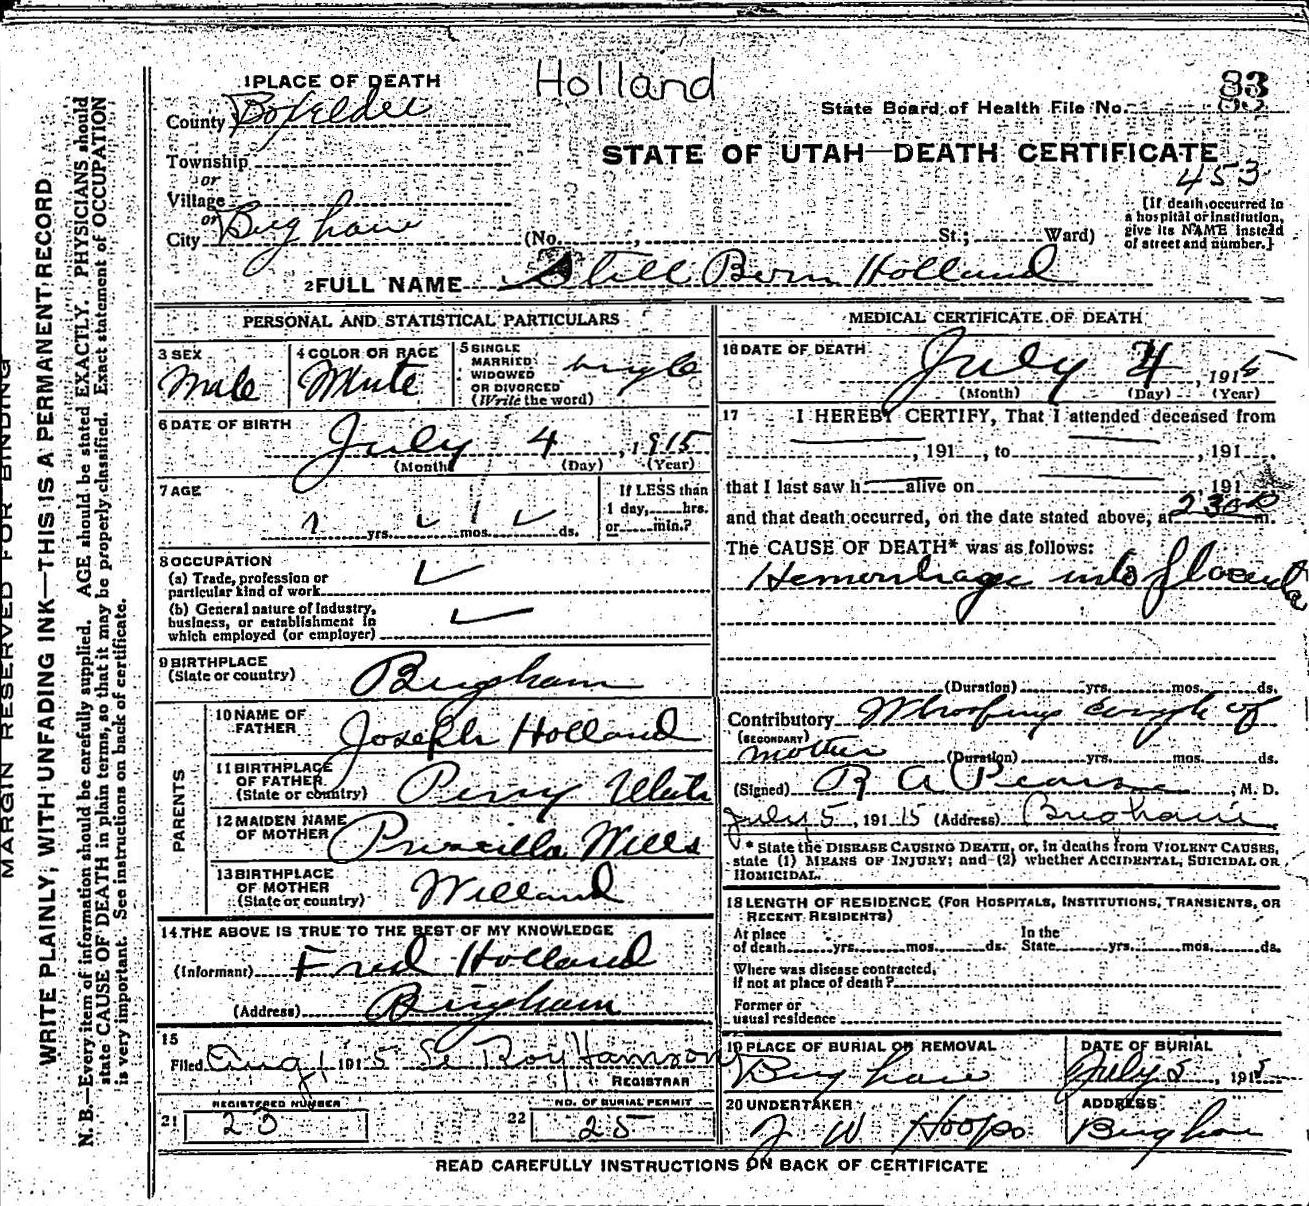 Holland
1 PLACE OF DEATH
State Board of Health File No. 83
County Boxelder
STATE OF UTAH—DEATH CERTIFICATE
453
Township
or
Village
or
City Brigham (No. , St.; Ward)
[If death occurred in a hospital or institution, give its NAME instead of street and number.]
2 FULL NAME Still Born Holland
PERSONAL AND STATISTICAL PARTICULARS
3 SEX
Male
4 COLOR OR RACE
White
5 SINGLE MARRIED WIDOWED OR DIVORCED (Write the word)
single
6 DATE OF BIRTH
July 4, 1915
(Month) (Day) (Year)
7 AGE
yrs. mos. ds.
If LESS than 1 day, hrs. or min.?
8 OCCUPATION
(a) Trade, profession or particular kind of work
(b) General nature of industry, business, or establishment in which employed (or employer)
9 BIRTHPLACE
(State or country)
Brigham
PARENTS
10 NAME OF FATHER
Joseph Holland
11 BIRTHPLACE OF FATHER
(State or country)
Perry Utah
12 MAIDEN NAME OF MOTHER
Priscilla Wells
13 BIRTHPLACE OF MOTHER
(State or country)
Willard
14 THE ABOVE IS TRUE TO THE BEST OF MY KNOWLEDGE
(Informant) Fred Holland
(Address) Brigham
15
Filed Aug 1 1915
REGISTRAR
REGISTERED NUMBER
21 23
NO. OF BURIAL PERMIT
22 25
MEDICAL CERTIFICATE OF DEATH
16 DATE OF DEATH
July 4, 1915
(Month) (Day) (Year)
17 I HEREBY CERTIFY, That I attended deceased from
, 191 , to , 191 ,
that I last saw h alive on 191
and that death occurred, on the date stated above, at 230 m.
The CAUSE OF DEATH* was as follows:
Hemorrhage into placenta
(Duration) yrs. mos. ds.
Contributory Whooping cough of
(SECONDARY)
mother (Duration) yrs. mos. ds.
(Signed) R A Pearse, M. D.
July 5, 1915 (Address) Brigham
* State the DISEASE CAUSING DEATH, or, in deaths from VIOLENT CAUSES, state (1) MEANS OF INJURY; and (2) whether ACCIDENTAL, SUICIDAL OR HOMICIDAL.
18 LENGTH OF RESIDENCE (FOR HOSPITALS, INSTITUTIONS, TRANSIENTS, OR RECENT RESIDENTS)
At place of death yrs. mos. ds. In the State yrs. mos. ds.
Where was disease contracted, if not at place of death?
Former or usual residence
19 PLACE OF BURIAL OR REMOVAL
Brigham
DATE OF BURIAL
July 5, 1915
20 UNDERTAKER
J W Hoops
ADDRESS
Brigham
READ CAREFULLY INSTRUCTIONS ON BACK OF CERTIFICATE
MARGIN RESERVED FOR BINDING
WRITE PLAINLY, WITH UNFADING INK—THIS IS A PERMANENT RECORD
N. B.—Every item of information should be carefully supplied. AGE should be stated EXACTLY. PHYSICIANS should
state CAUSE OF DEATH in plain terms, so that it may be properly classified. Exact statement of OCCUPATION
is very important. See instructions on back of certificate.